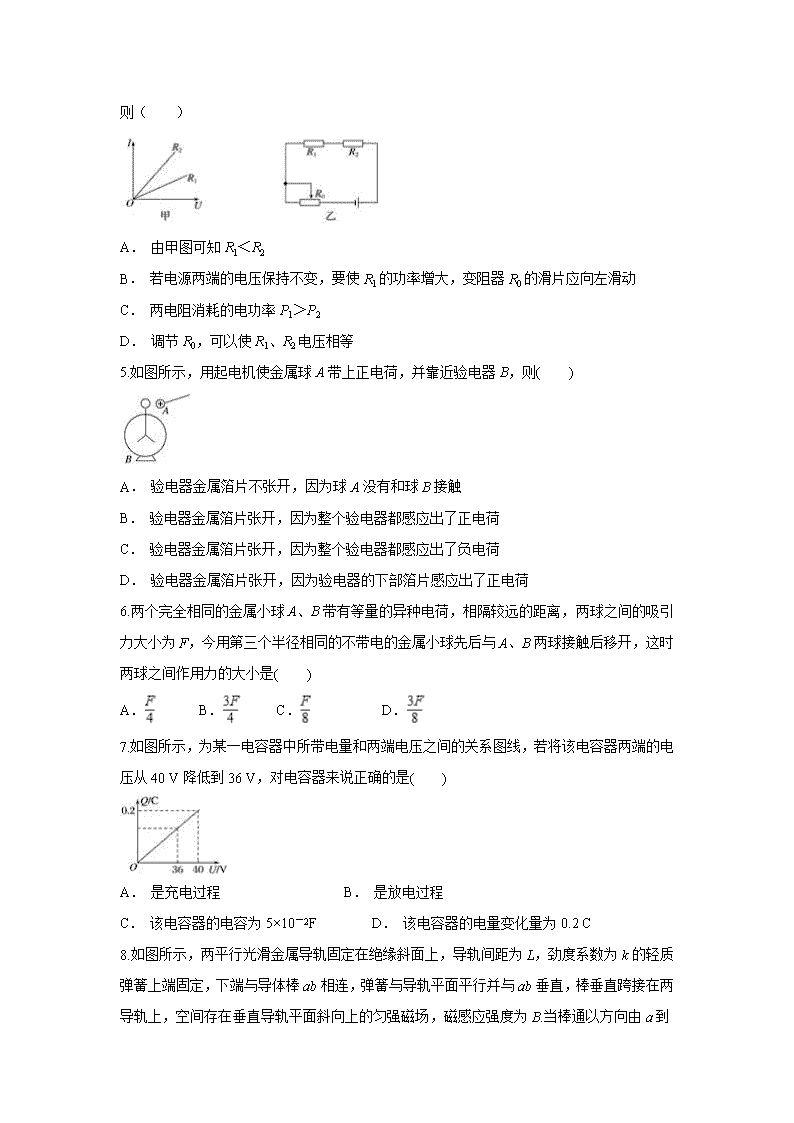 则(　　)
I R₂ R₁ O U 甲
R₁ R₂ R₀ 乙
A． 由甲图可知 R₁＜R₂
B． 若电源两端的电压保持不变，要使 R₁的功率增大，变阻器 R₀的滑片应向左滑动
C． 两电阻消耗的电功率 P₁＞P₂
D． 调节 R₀，可以使 R₁、R₂电压相等
5.如图所示，用起电机使金属球 A 带上正电荷，并靠近验电器 B，则(　　)
A
B
A． 验电器金属箔片不张开，因为球 A 没有和球 B 接触
B． 验电器金属箔片张开，因为整个验电器都感应出了正电荷
C． 验电器金属箔片张开，因为整个验电器都感应出了负电荷
D． 验电器金属箔片张开，因为验电器的下部箔片感应出了正电荷
6.两个完全相同的金属小球 A、B 带有等量的异种电荷，相隔较远的距离，两球之间的吸引
力大小为 F，今用第三个半径相同的不带电的金属小球先后与 A、B 两球接触后移开，这时
两球之间作用力的大小是(　　)
A．F/4　B．3F/4　C．F/8　D．3F/8
7.如图所示，为某一电容器中所带电量和两端电压之间的关系图线，若将该电容器两端的电
压从 40 V 降低到 36 V，对电容器来说正确的是(　　)
Q/C
0.2
O 36 40 U/V
A． 是充电过程　B． 是放电过程
C． 该电容器的电容为 5×10⁻²F　D． 该电容器的电量变化量为 0.2 C
8.如图所示，两平行光滑金属导轨固定在绝缘斜面上，导轨间距为 L，劲度系数为 k 的轻质
弹簧上端固定，下端与导体棒 ab 相连，弹簧与导轨平面平行并与 ab 垂直，棒垂直跨接在两
导轨上，空间存在垂直导轨平面斜向上的匀强磁场，磁感应强度为 B.当棒通以方向由 a 到